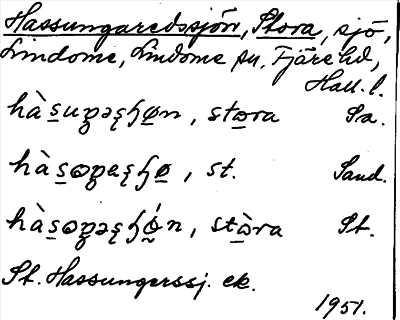 Hassungaredssjön, Stora, sjö,
Lindome, Lindome sn, Fjäre hd,
Hall. l.
hàs̲uꝩəȿɧø̲n, sto̲ra Sa.
hàs̲ɷꝩeȿɧø̲, st. Sand.
hàs̲ɷꝩəȿɧǿ̲n, stò̲ra St.
St. Hassungerssj. ek.
1951.